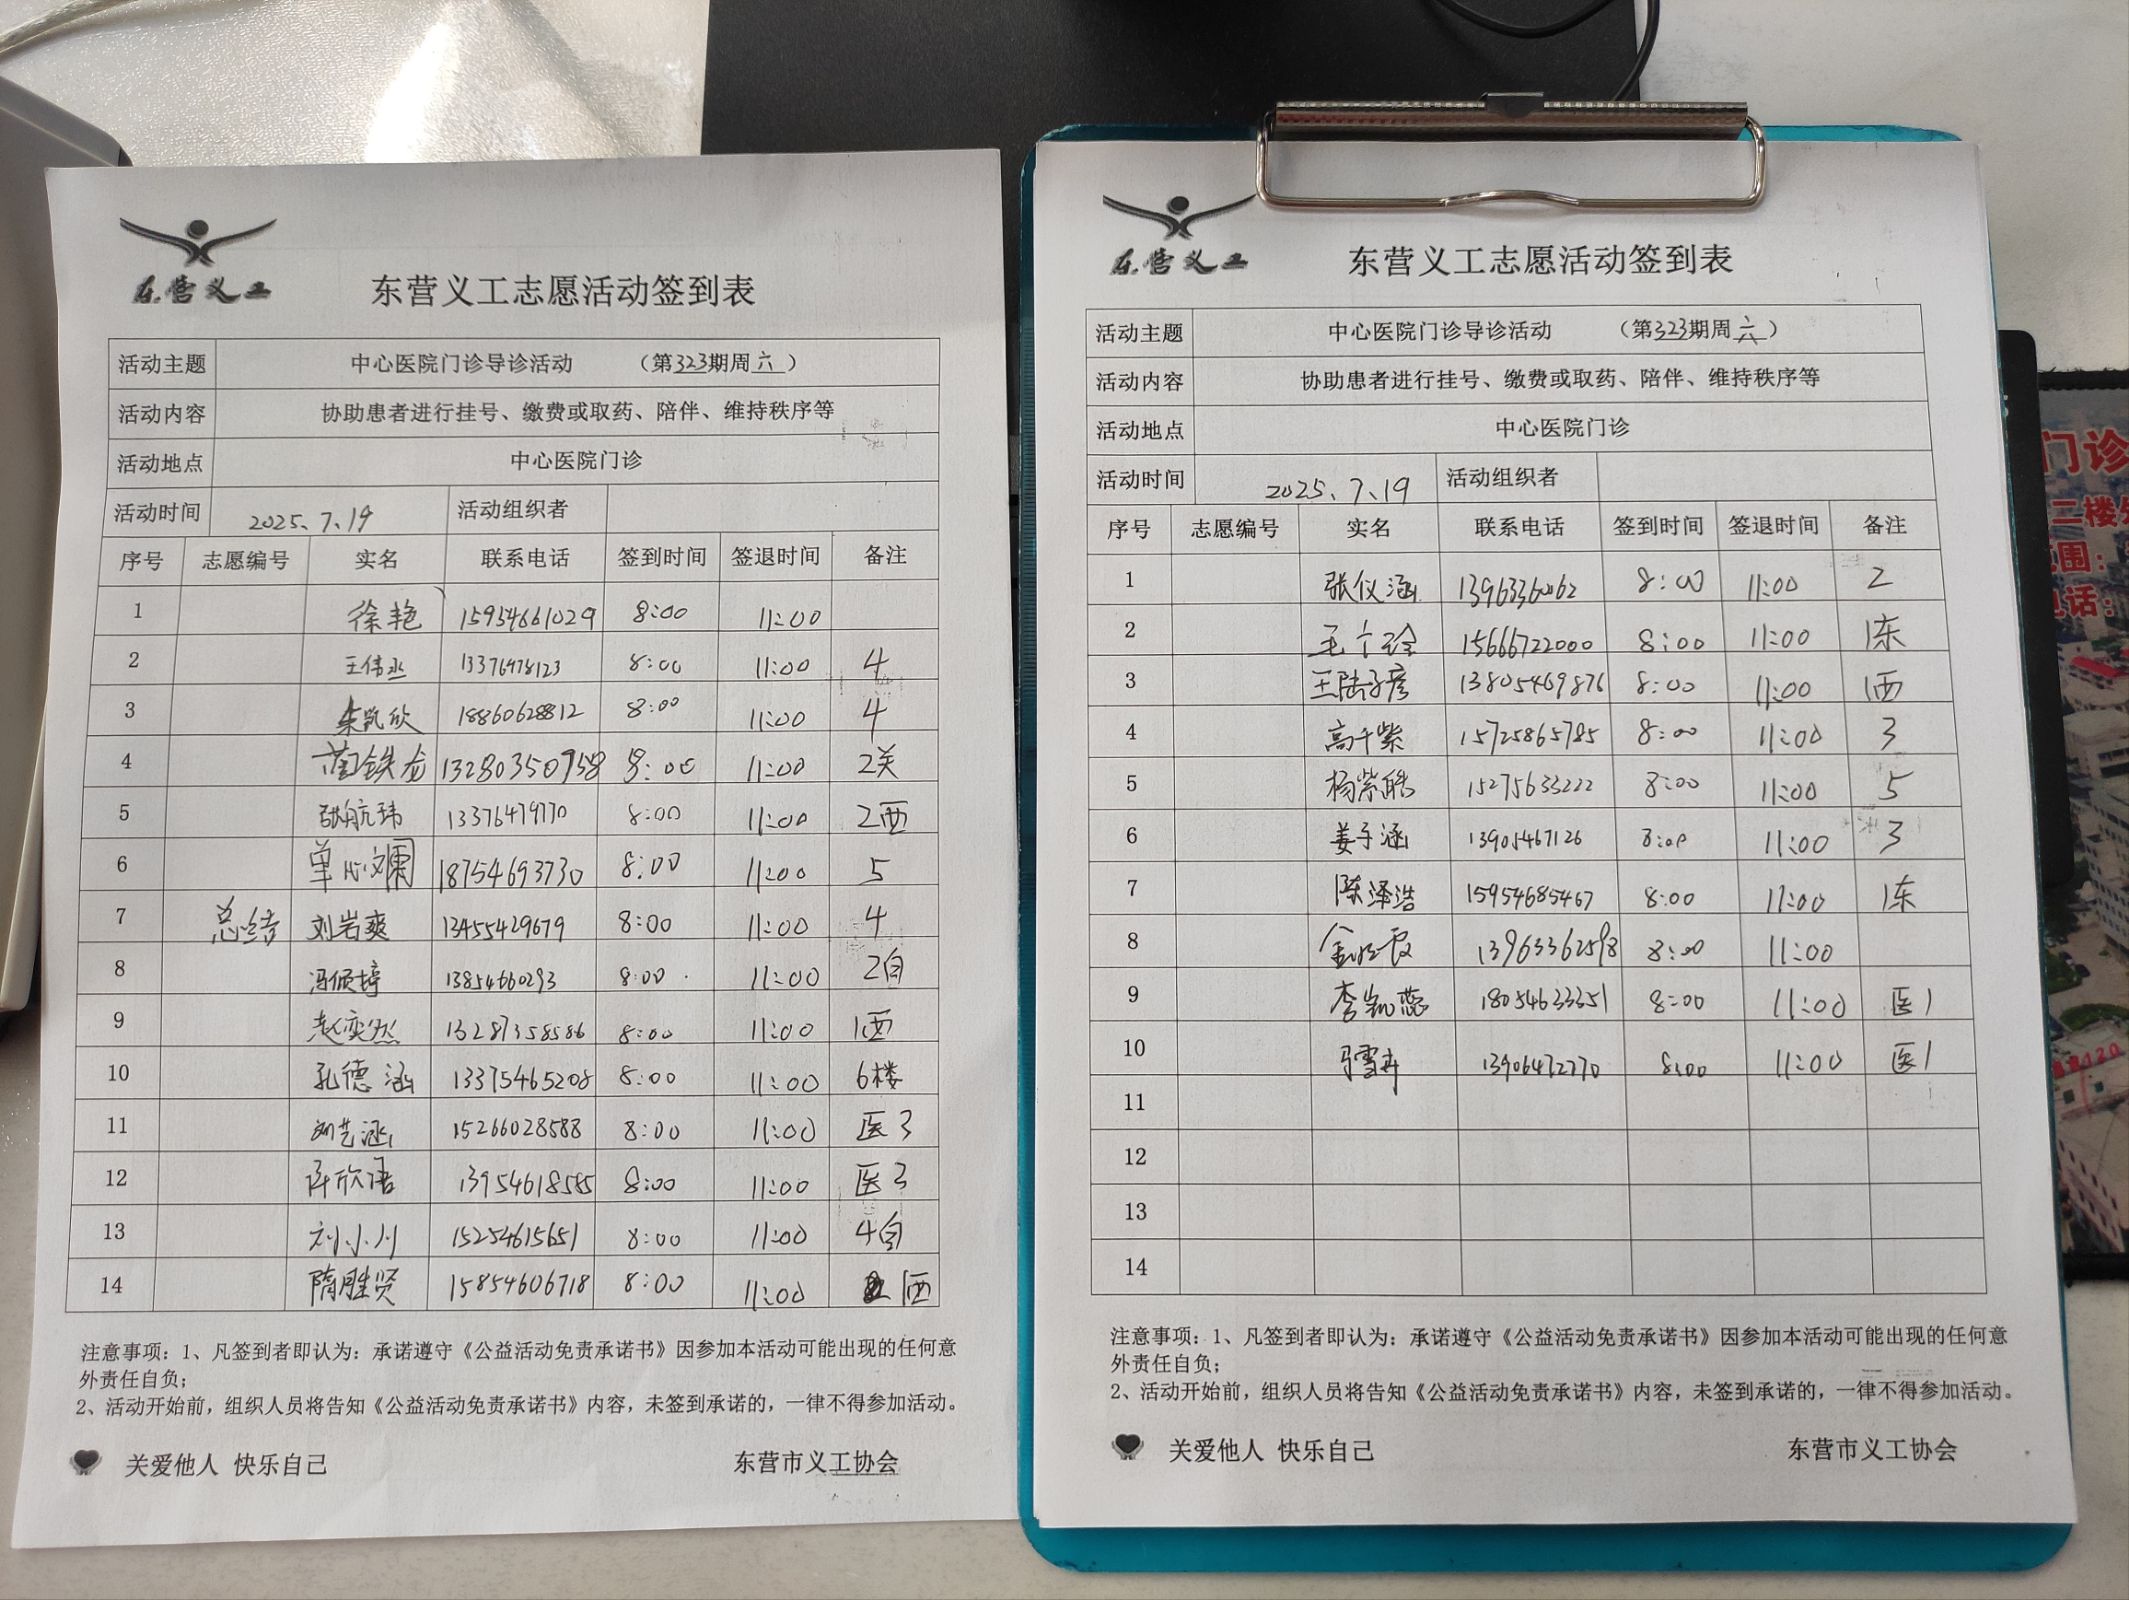 东营义工
东营义工志愿活动签到表
活动主题 中心医院门诊导诊活动 （第323期周六）
活动内容 协助患者进行挂号、缴费或取药、陪伴、维持秩序等
活动地点 中心医院门诊
活动时间 2025、7、19 活动组织者
序号 志愿编号 实名 联系电话 签到时间 签退时间 备注
1 徐艳 15954661029 8:00 11:00
2 王伟丞 13376478123 8:00 11:00 4
3 朱凯欣 18860628812 8:00 11:00 4
4 蔺铁龙 13280350958 8:00 11:00 2关
5 张航玮 13376479770 8:00 11:00 2西
6 单心斓 18754693730 8:00 11:00 5
7 总结 刘岩爽 13455429679 8:00 11:00 4
8 冯倾婷 13854660293 8:00 11:00 2自
9 赵奕然 13287358586 8:00 11:00 1西
10 孔德涵 13375465208 8:00 11:00 6楼
11 刘艺涵 15266028588 8:00 11:00 医3
12 欣语 13954618585 8:00 11:00 医3
13 刘小川 15254615651 8:00 11:00 4自
14 隋胜贤 15854606718 8:00 11:00 1西
注意事项：1、凡签到者即认为：承诺遵守《公益活动免责承诺书》因参加本活动可能出现的任何意
外责任自负；
2、活动开始前，组织人员将告知《公益活动免责承诺书》内容，未签到承诺的，一律不得参加活动。
关爱他人 快乐自己 东营市义工协会
东营义工
东营义工志愿活动签到表
活动主题 中心医院门诊导诊活动 （第323期周六）
活动内容 协助患者进行挂号、缴费或取药、陪伴、维持秩序等
活动地点 中心医院门诊
活动时间 2025、7、19 活动组织者
序号 志愿编号 实名 联系电话 签到时间 签退时间 备注
1 张仪涵 13963360062 8:00 11:00 2
2 王 15666722000 8:00 11:00 1东
3 王陆子彦 13805469876 8:00 11:00 1西
4 高千紫 15725865785 8:00 11:00 3
5 杨紫皓 15275633222 8:00 11:00 5
6 姜子涵 13905467126 8:00 11:00 3
7 陈泽浩 15954685467 8:00 11:00 1东
8 金 13963362598 8:00 11:00
9 李凯蕊 18054633351 8:00 11:00 医1
10 马雪卉 13906472770 8:00 11:00 医1
11
12
13
14
注意事项：1、凡签到者即认为：承诺遵守《公益活动免责承诺书》因参加本活动可能出现的任何意
外责任自负；
2、活动开始前，组织人员将告知《公益活动免责承诺书》内容，未签到承诺的，一律不得参加活动。
关爱他人 快乐自己 东营市义工协会
门诊
二楼
围：
电话：
120